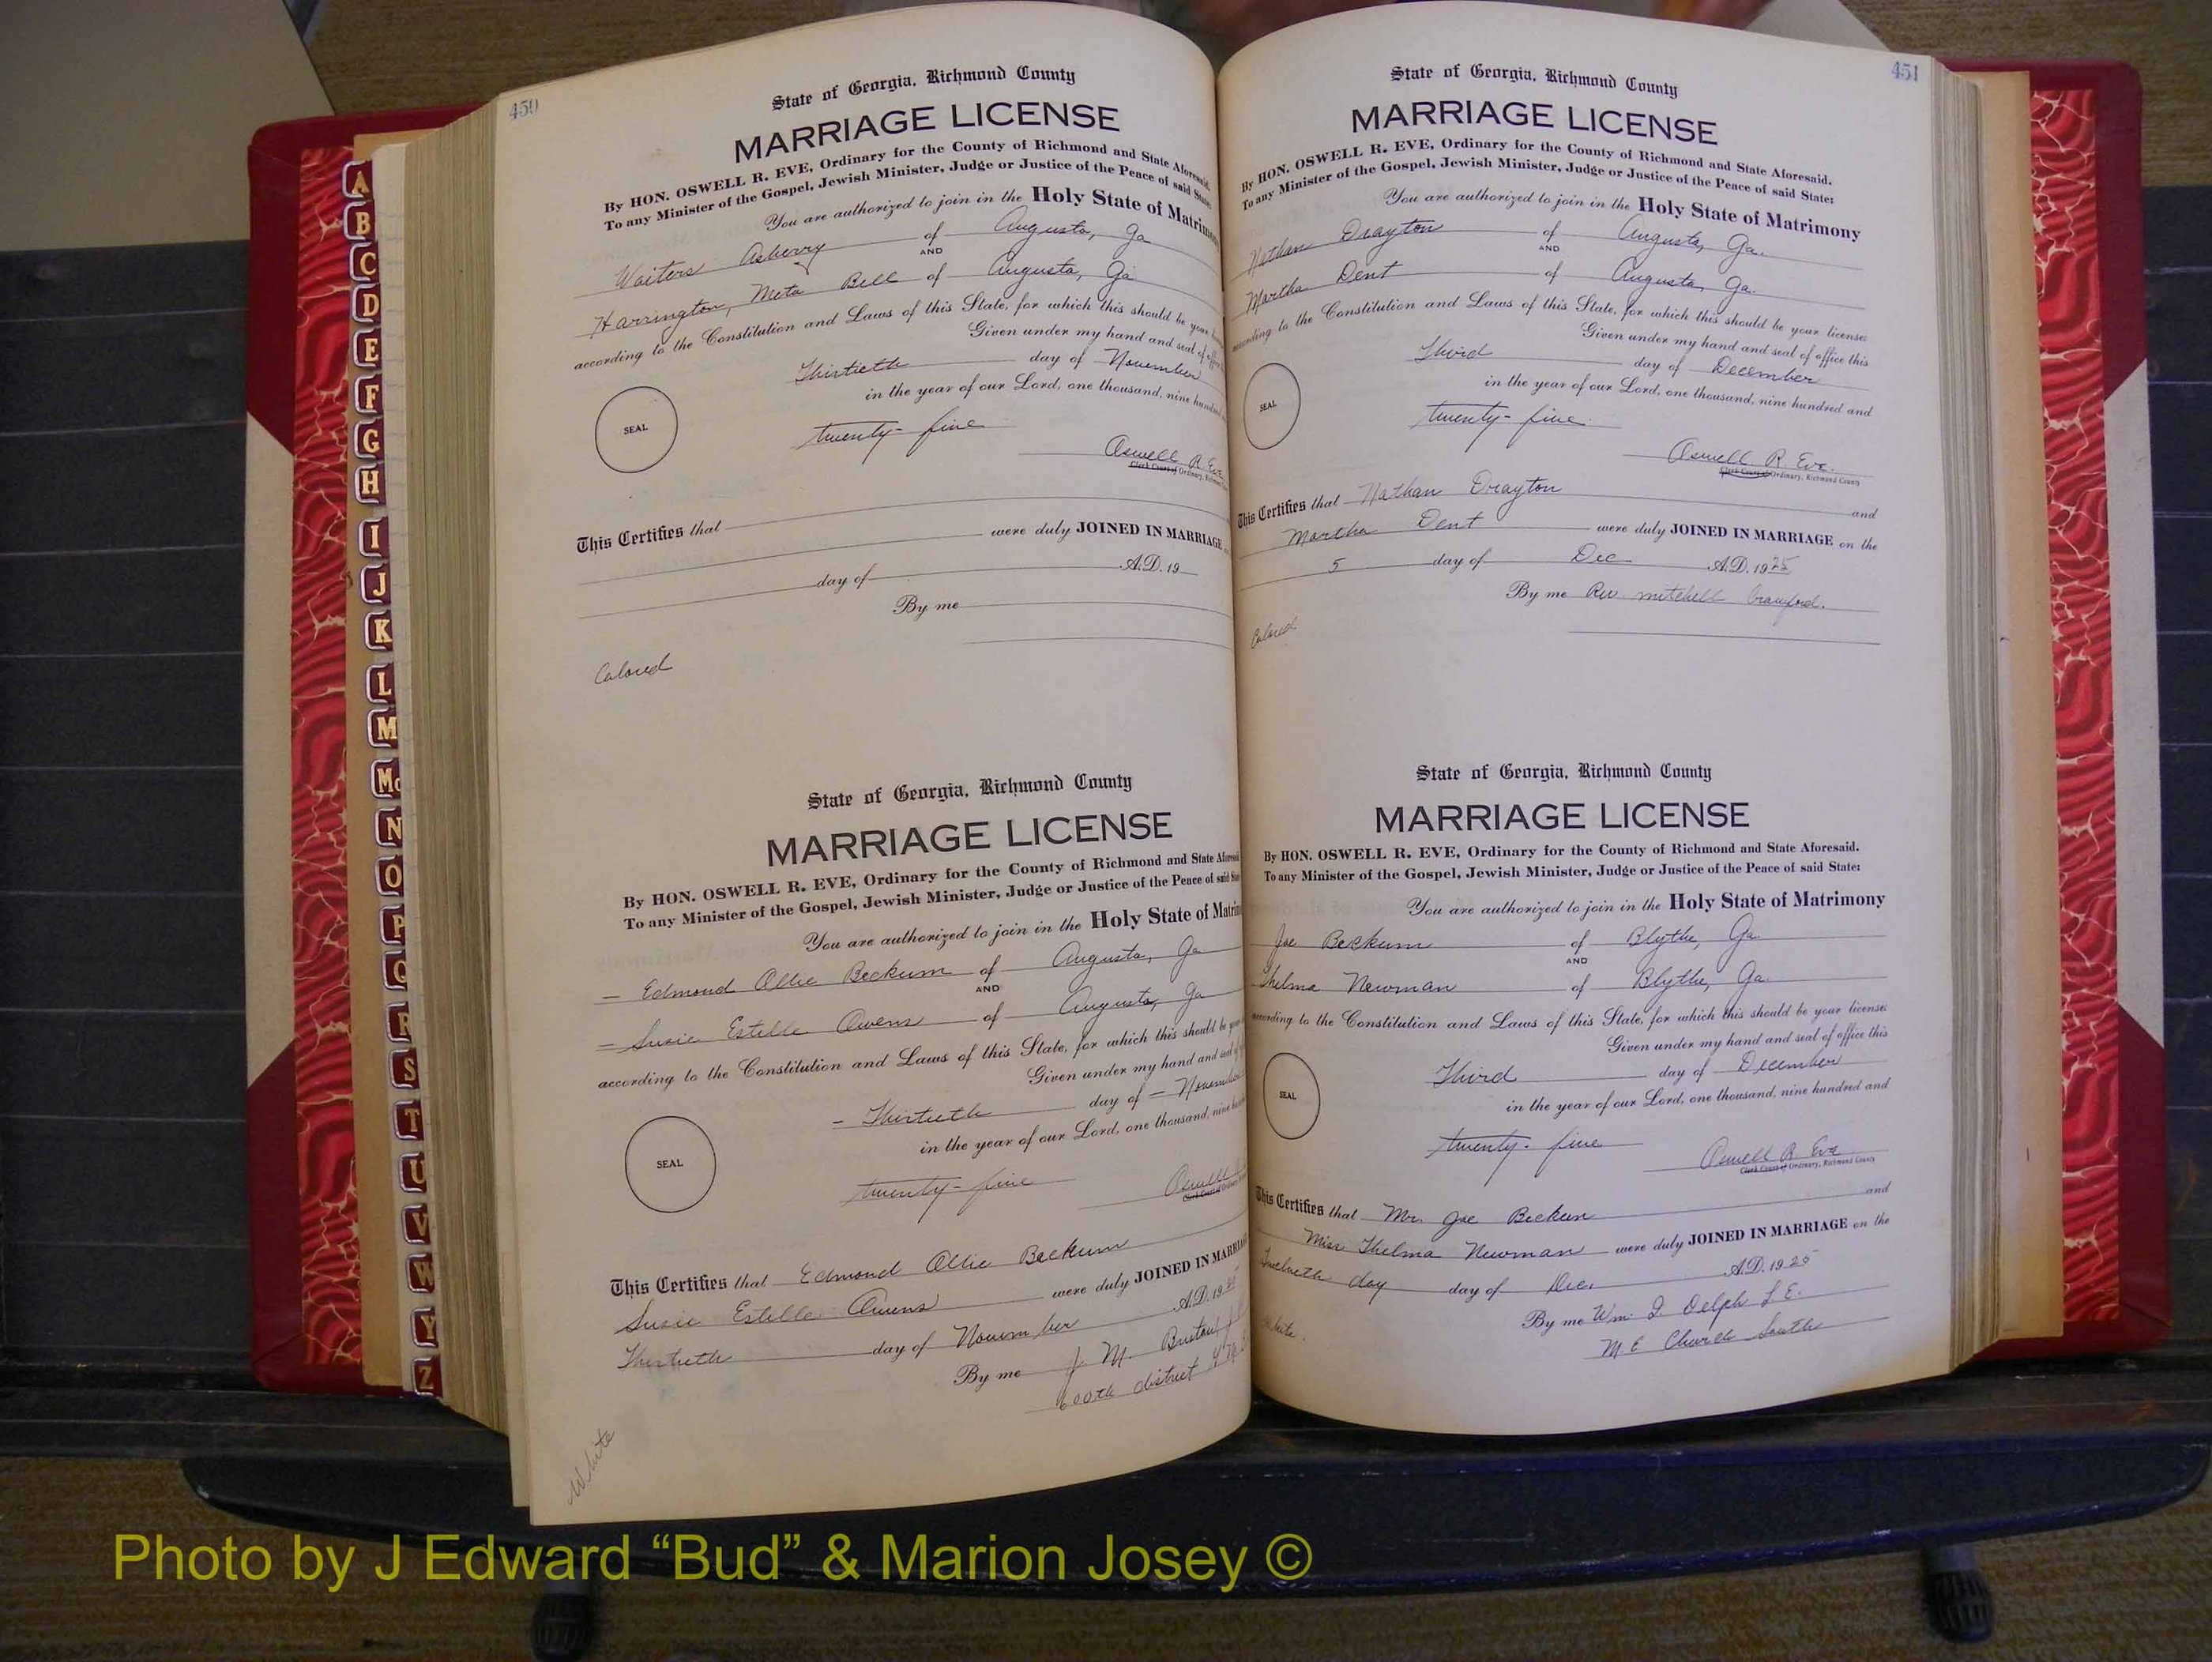 450
State of Georgia, Richmond County
MARRIAGE LICENSE
By HON. OSWELL R. EVE, Ordinary for the County of Richmond and State Aforesaid.
To any Minister of the Gospel, Jewish Minister, Judge or Justice of the Peace of said State:
You are authorized to join in the Holy State of Matrimony
Waiters Asberry of Augusta, Ga
AND
Harrington, Meta Bell of Augusta, Ga
according to the Constitution and Laws of this State, for which this should be your
Given under my hand and seal of
Thirtieth day of November
in the year of our Lord, one thousand, nine
SEAL
twenty-five
Oswell R. Eve
Clerk Court of Ordinary, Richmond
This Certifies that
were duly JOINED IN MARRIAGE
day of A.D. 19
By me
Colored
State of Georgia, Richmond County
MARRIAGE LICENSE
By HON. OSWELL R. EVE, Ordinary for the County of Richmond and State
To any Minister of the Gospel, Jewish Minister, Judge or Justice of the Peace of said
You are authorized to join in the Holy State of
– Edmond Ollie Beckum of Augusta, Ga
AND
= Susie Estelle Owens of Augusta, Ga
according to the Constitution and Laws of this State, for which this should be
Given under my hand and seal
– Thirtieth day of = November
in the year of our Lord, one thousand,
SEAL
twenty-five
Oswell
Clerk Court of
This Certifies that Edmond Ollie Beckum
Susie Estelle Owens were duly JOINED IN
Thirtieth day of November A.D. 19
By me J. M.
600th district
White
451
State of Georgia, Richmond County
MARRIAGE LICENSE
By HON. OSWELL R. EVE, Ordinary for the County of Richmond and State Aforesaid.
To any Minister of the Gospel, Jewish Minister, Judge or Justice of the Peace of said State:
You are authorized to join in the Holy State of Matrimony
Nathan Drayton of Augusta, Ga.
AND
Martha Dent of Augusta, Ga.
according to the Constitution and Laws of this State, for which this should be your license
Given under my hand and seal of office this
Third day of December
in the year of our Lord, one thousand, nine hundred and
SEAL
twenty-five
Oswell R. Eve.
Clerk Court of Ordinary, Richmond County
This Certifies that Nathan Drayton and
Martha Dent were duly JOINED IN MARRIAGE on the
5 day of Dec A.D. 1925
By me Rev. mitchell Crawford.
Colored
State of Georgia, Richmond County
MARRIAGE LICENSE
By HON. OSWELL R. EVE, Ordinary for the County of Richmond and State Aforesaid.
To any Minister of the Gospel, Jewish Minister, Judge or Justice of the Peace of said State:
You are authorized to join in the Holy State of Matrimony
Joe Beckum of Blythe, Ga
AND
Thelma Newman of Blythe, Ga.
according to the Constitution and Laws of this State, for which this should be your license
Given under my hand and seal of office this
Third day of December
in the year of our Lord, one thousand, nine hundred and
SEAL
twenty-five
Oswell R Eve
Clerk Court of Ordinary, Richmond County
This Certifies that Mr. Joe Beckum and
Miss Thelma Newman were duly JOINED IN MARRIAGE on the
day day of Dec. A.D. 1925
By me Wm. J. Delph L E.
M. E Church South
White.
A
B
C
D
E
F
G
H
I
J
K
L
M
Mc
N
O
P
Q
R
S
T
U
V
W
Y
Z
Photo by J Edward “Bud” & Marion Josey ©